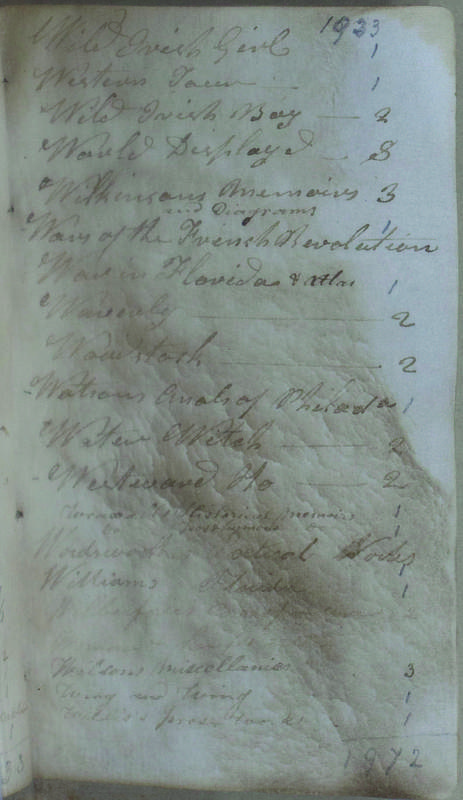 1933
Wild Irish Girl 1
Western Tour 1
Wild Irish Boy 2
World Displayed 8
Wilkinsons Memoirs 3
and Diagrams
Wars of the French Revolution 1
War in Florida & Atlas 1
Waverly 2
Woodstock 2
Watsons Anals of Philada 1
Water Witch 2
Westward Ho 2
Historical memoirs 1
Posthumous 1
Wordsworths Poetical Works 1
Williams Florida 1
2
Wilsons Miscellanies 3
Wing and Wing 1
prose works 1
1972